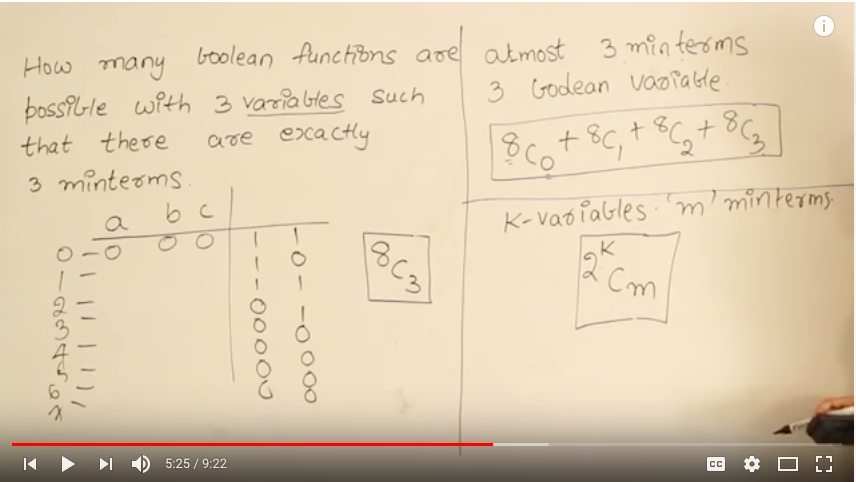 How many boolean functions are
possible with 3 variables such
that there are exactly
3 minterms.
a b c
0 – 0 0 0 1 1
1 – 1 0
2 – 1 1
3 – 0 1
4 – 0 0
5 – 0 0
6 – 0 0
7 – 0 0
8C3
atmost 3 minterms
3 boolean variable.
8C0 + 8C1 + 8C2 + 8C3
K-variables. 'm' minterms.
2^K Cm
i
5:25 / 9:22
CC